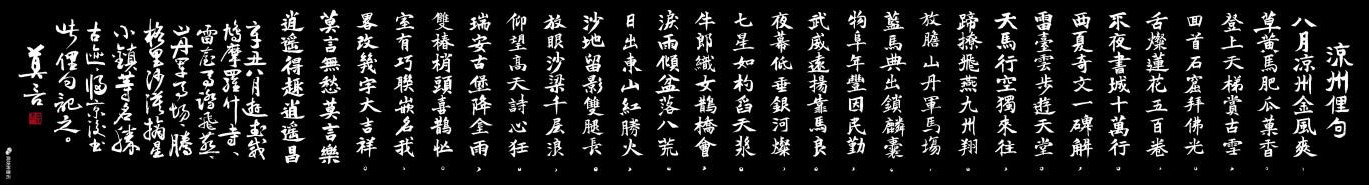 涼州俚句
八月凉州金風爽，
草黃馬肥瓜菓香。
登上天梯賞古雪，
回首石窟拜佛光。
舌燦蓮花五百卷，
不夜書城十萬行。
两夏奇文一碑解，
雷臺雲步遊天堂。
天馬行空獨來往，
蹄撩飛燕九州翔。
放膽山丹軍馬場，
藍馬典出鎖麟囊。
物阜年豐因民勤，
武威遠揚靠馬良。
夜幕低垂銀河燦，
七星如杓舀天漿。
牛郎織女鵲橋會，
淚雨傾盆落八荒。
日出東山紅勝火，
沙地留影雙腿長。
放眼沙梁千层浪，
仰望高天詩心狂。
瑞安古堡降金雨，
雙椿梢頭喜鵲忙。
室有巧聯嵌名我，
畧改幾字大吉祥。
莫言無愁莫言樂
逍遥得趣逍遥昌
辛丑八月遊武威
鳩摩羅什寺、
雷臺馬踏飛燕、
山丹軍馬場、騰
格里沙漠、摘星
小鎮等名勝
古迹，归京後書
此俚句記之。
莫言